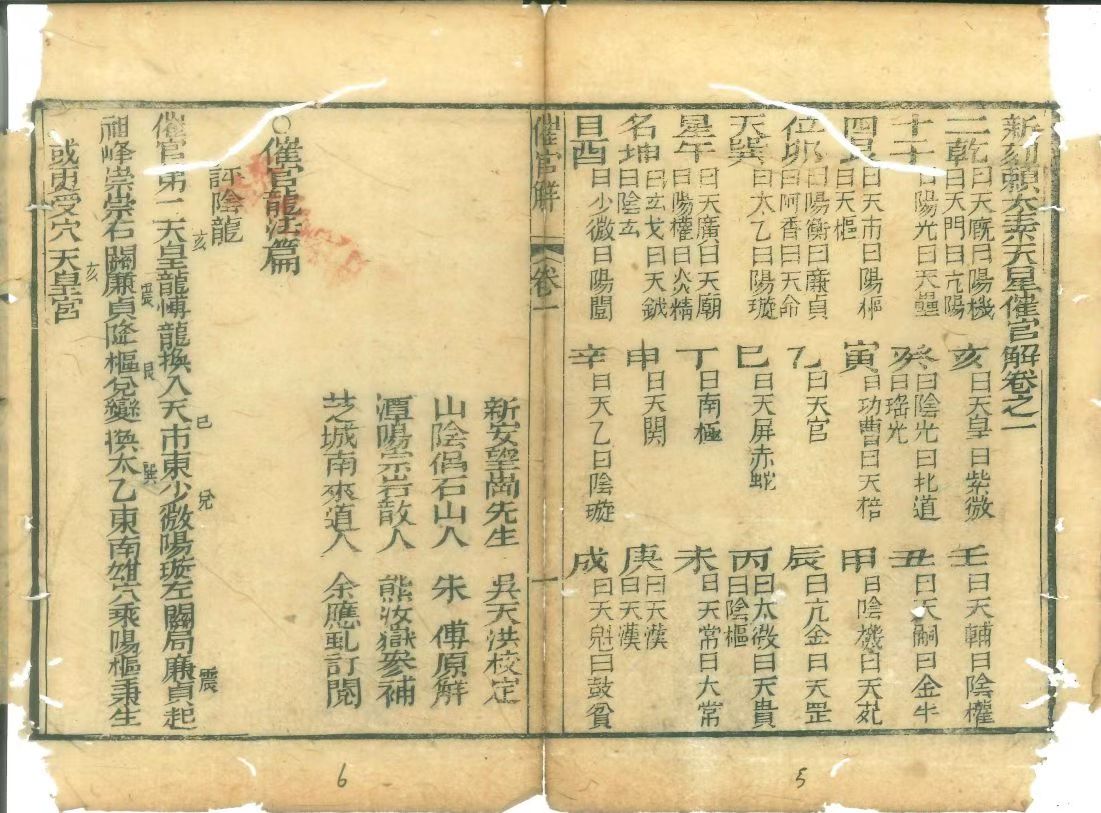 新刻賴太素天星催官解卷之一
二乾曰天廐曰陽機曰天門曰亢陽 亥曰天皇曰紫微 壬曰天輔曰陰權
十子曰陽光曰天壘 癸曰陰光曰北道曰瑤光 丑曰天嗣曰金牛
四艮曰天市曰陽樞曰天樞 寅曰功曹曰天棓 甲曰陰機曰天苑
位卯曰陽衡曰廉貞曰阿香曰天命 乙曰天官 辰曰亢金曰天罡
天巽曰太乙曰陽璇 巳曰天屏赤蛇 丙曰太微曰天貴曰陰樞
星午曰天廣曰天廟曰陽權曰炎精 丁曰南極 未曰天常曰大常
名坤曰玄戈曰天鉞曰陰玄 申曰天関 庚曰天漢曰天潢
目酉曰少微曰陽闓 辛曰天乙曰陰璇 戌曰天魁曰鼓盆
催官解 卷一 一
新安望崗先生 吳天洪校定
山陰侶石山人 朱傅原解
潭陽宗岩散人 熊汝嶽參補
芝城南來道人 余應虬訂閱
○催官龍法篇
評陰龍
催官第一天皇龍博龍換入天市東少微陽璇左關局廉貞起
亥 震 艮 巳 兌 震
祖峰崇崇右關廉貞降樞兌變換太乙東南雄穴乘陽樞秉生
巽
或更受穴天皇宮
亥
6
5